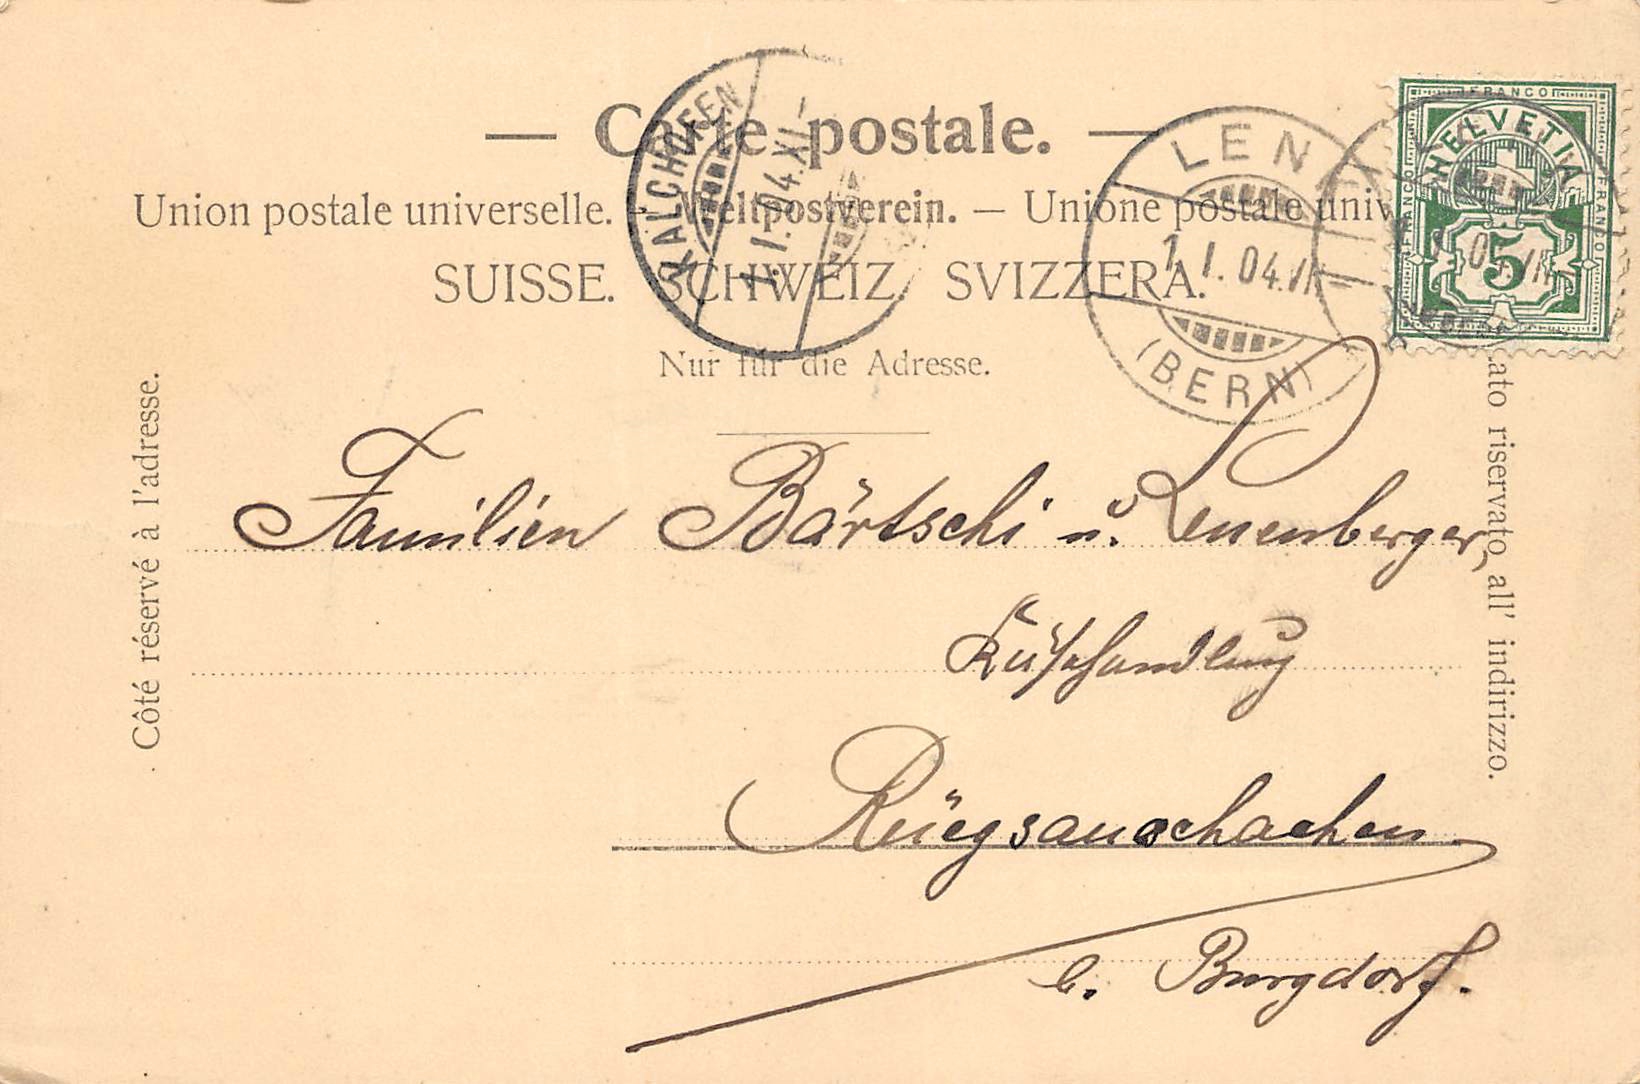 — Carte postale. —
Union postale universelle. — Weltpostverein. — Unione postale univ
SUISSE. SCHWEIZ. SVIZZERA.
Nur für die Adresse.
Côté réservé à l'adresse.
lato riservato all' indirizzo.
KALCHOFEN
1.I.04.XI-
LENK
1.I.04.VII-
(BERN)
FRANCO
FRANCO
FRANCO
HELVETIA
5
Familien Bärtschi u. Leuenberger,
Käshandlung
Rüegsauschachen
b. Burgdorf.